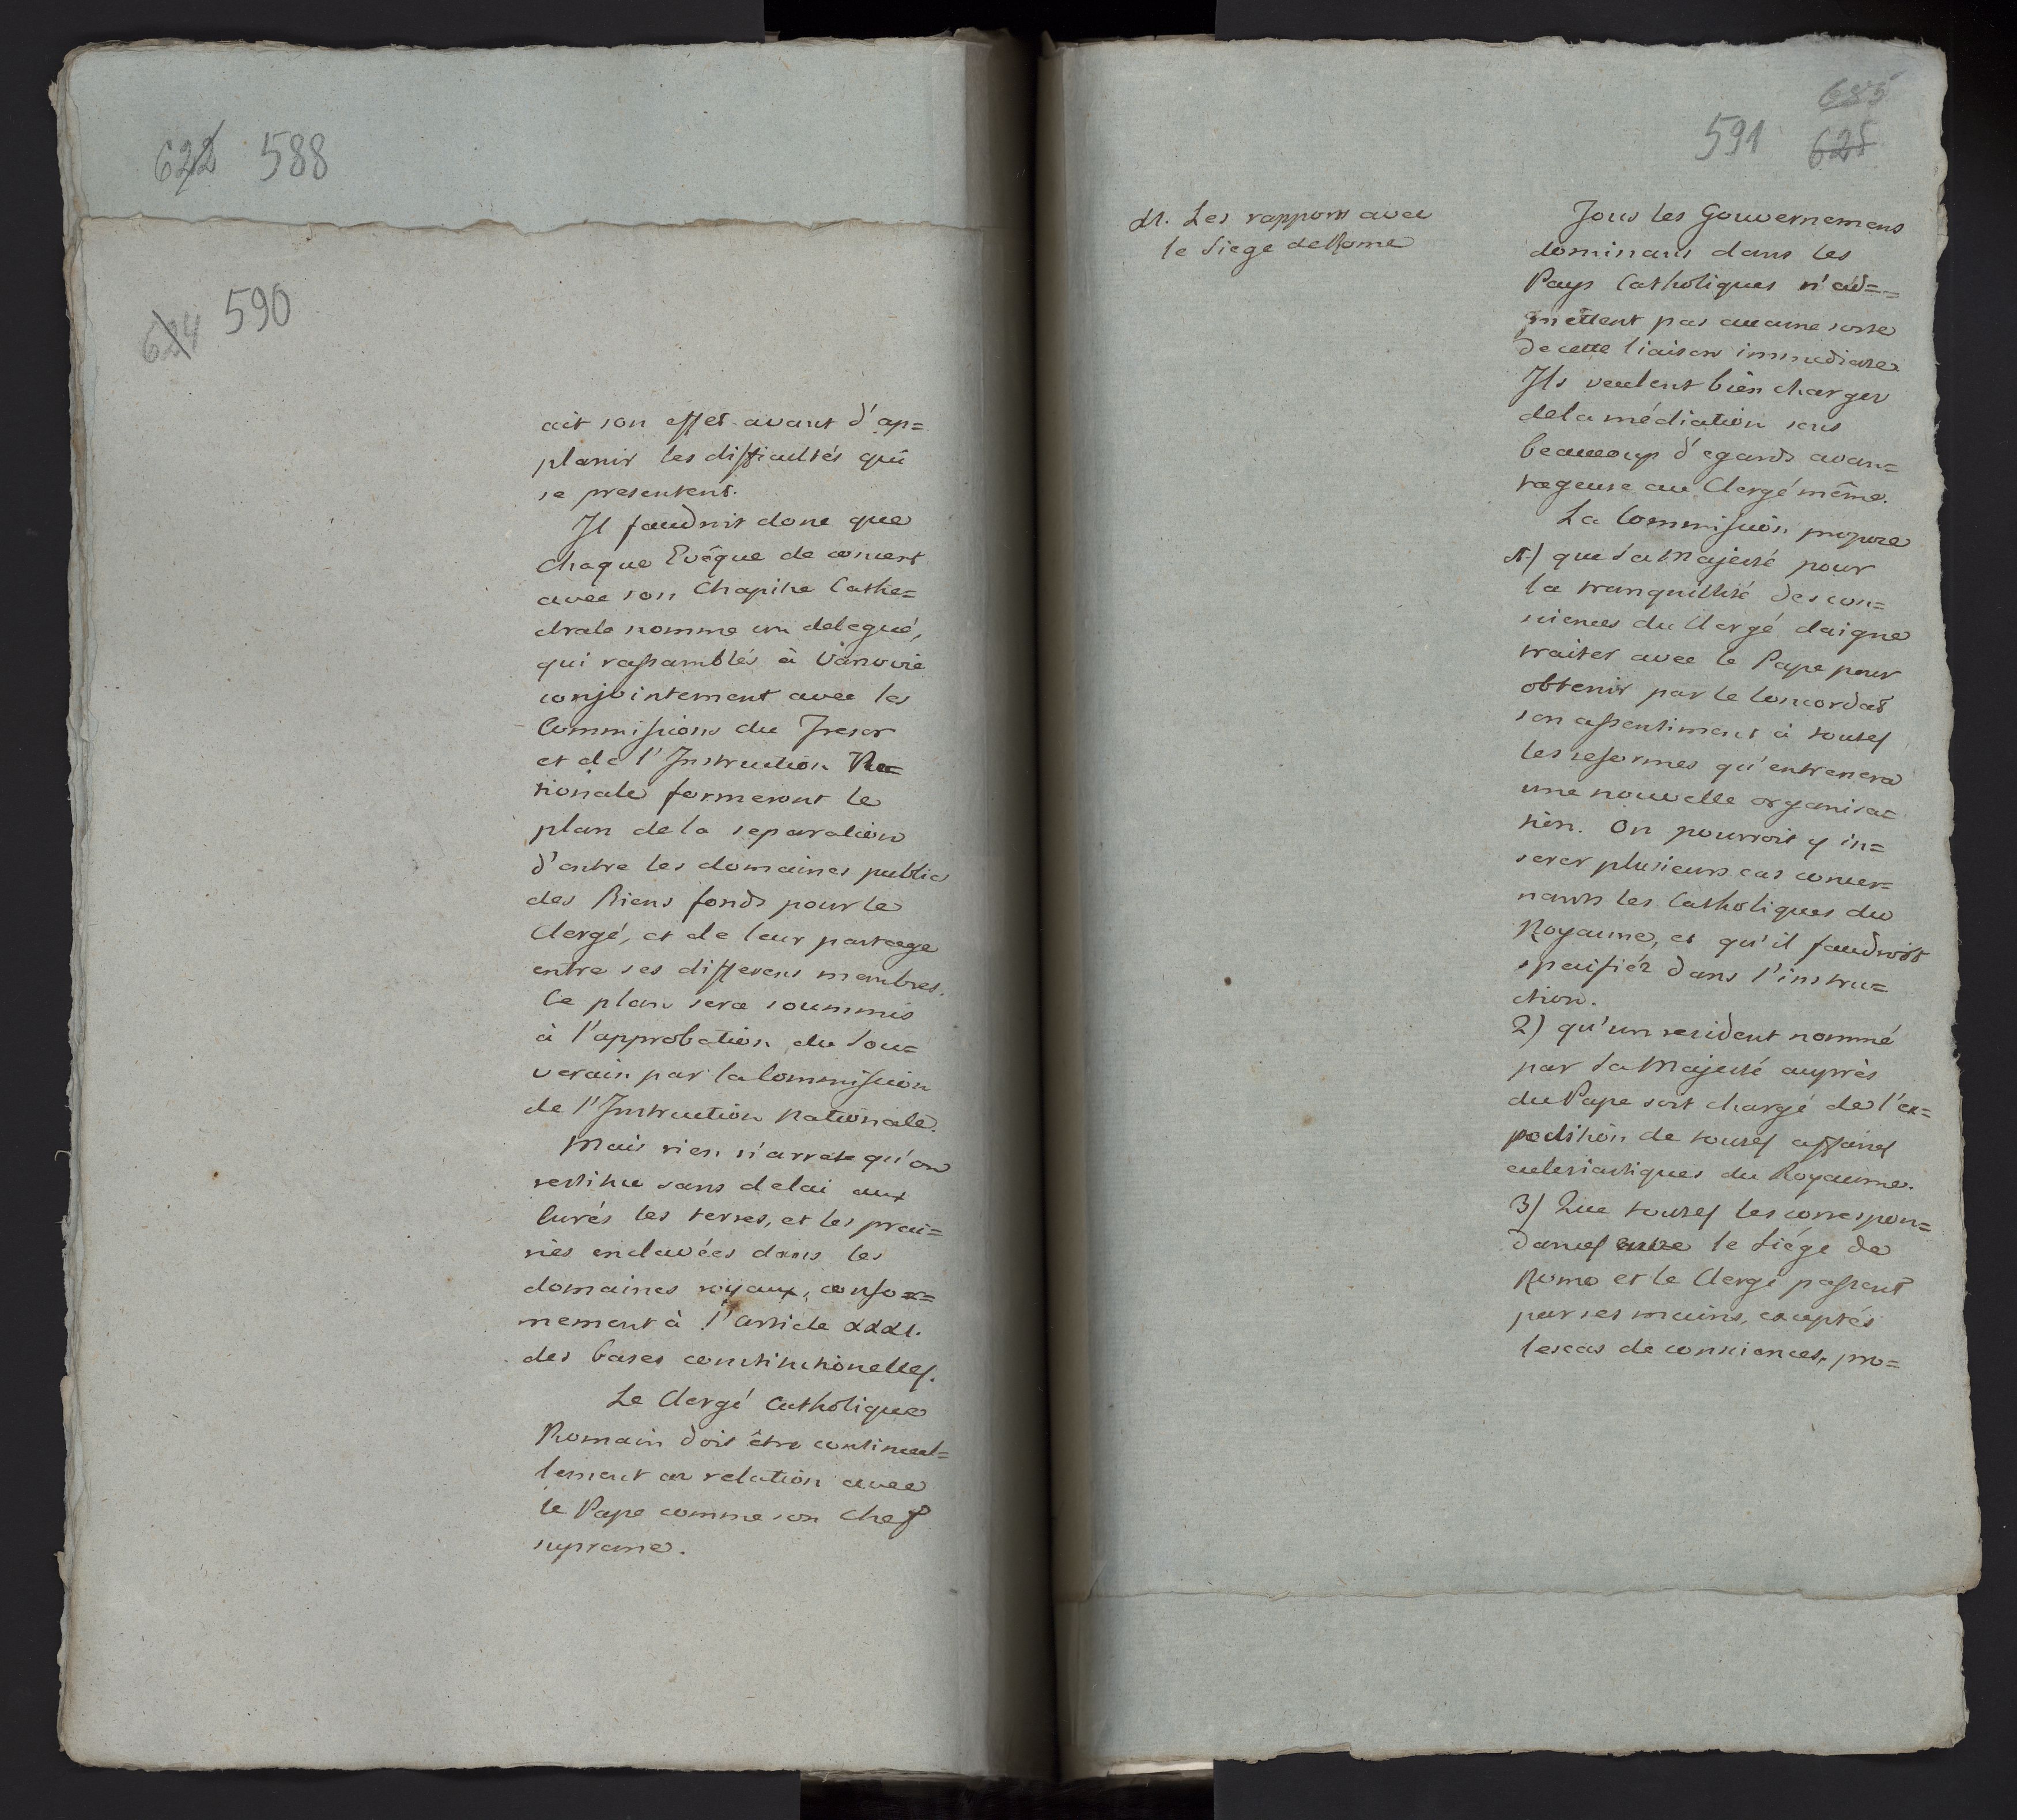 622 588
624 590
ait son effet avant d'ap=
planir les difficultés qui
se presentent.
Il faudroit donc que
chaque Evêque de concert
avec son Chapitre Cathe=
drale nomme un delegué,
qui rassamblés à Varsovie
conjointement avec les
Commissions du Tresor
et de l'Instruction Na=
tionale formeront le
plan de la separation
d'entre les domaines publics
des Biens fonds pour le
Clergé, et de leur partage
entre ses differens membres.
Ce plan sera soummis
à l'approbation du Sou=
verain par la Commission
de l'Instruction Nationale.
Mais rien n'arrete qu'on
restitue sans delai aux
Curés les terres, et les prai=
ries enclavées dans les
domaines royaux, confor=
mement à l'article
des bases constitutionelles.
Le Clergé Catholique
Romain doit être continuel=
lement en relation avec
le Pape comme son Chef
supreme.
685
591 625
Les rapports avec
le Siege de Rome
Tous les Gouvernemens
dominans dans les
Pays Catholiques n'ad=
mettent pas aucune sorte
de cette liaison immediate
Ils veulent bien charger
de la médiation sous
beaucoup d'egards avan=
tageuse au Clergé même.
La Commission propose
1) que Sa Majesté pour
la tranquillité des con=
sciences du Clergé daigne
traiter avec le Pape pour
obtenir par le Concordat
son assentiment à toutes
les reformes qu'entrenera
une nouvelle organisa=
tion. On pourroit y in=
serer plusieurs cas concer=
nants les Catholiques du
Royaume, et qu'il faudroit
specifiér dans l'instru=
ction.
2) qu'un resident nommé
par Sa Majesté auprès
du Pape soit chargé de l'ex=
pedition de toutes affaires
eclesiastiques du Royaume.
3) Que toutes les correspon=
dances entre le Siége de
Rome et le Clergé passent
par ses mains, exceptés
les cas de consciences, pro=